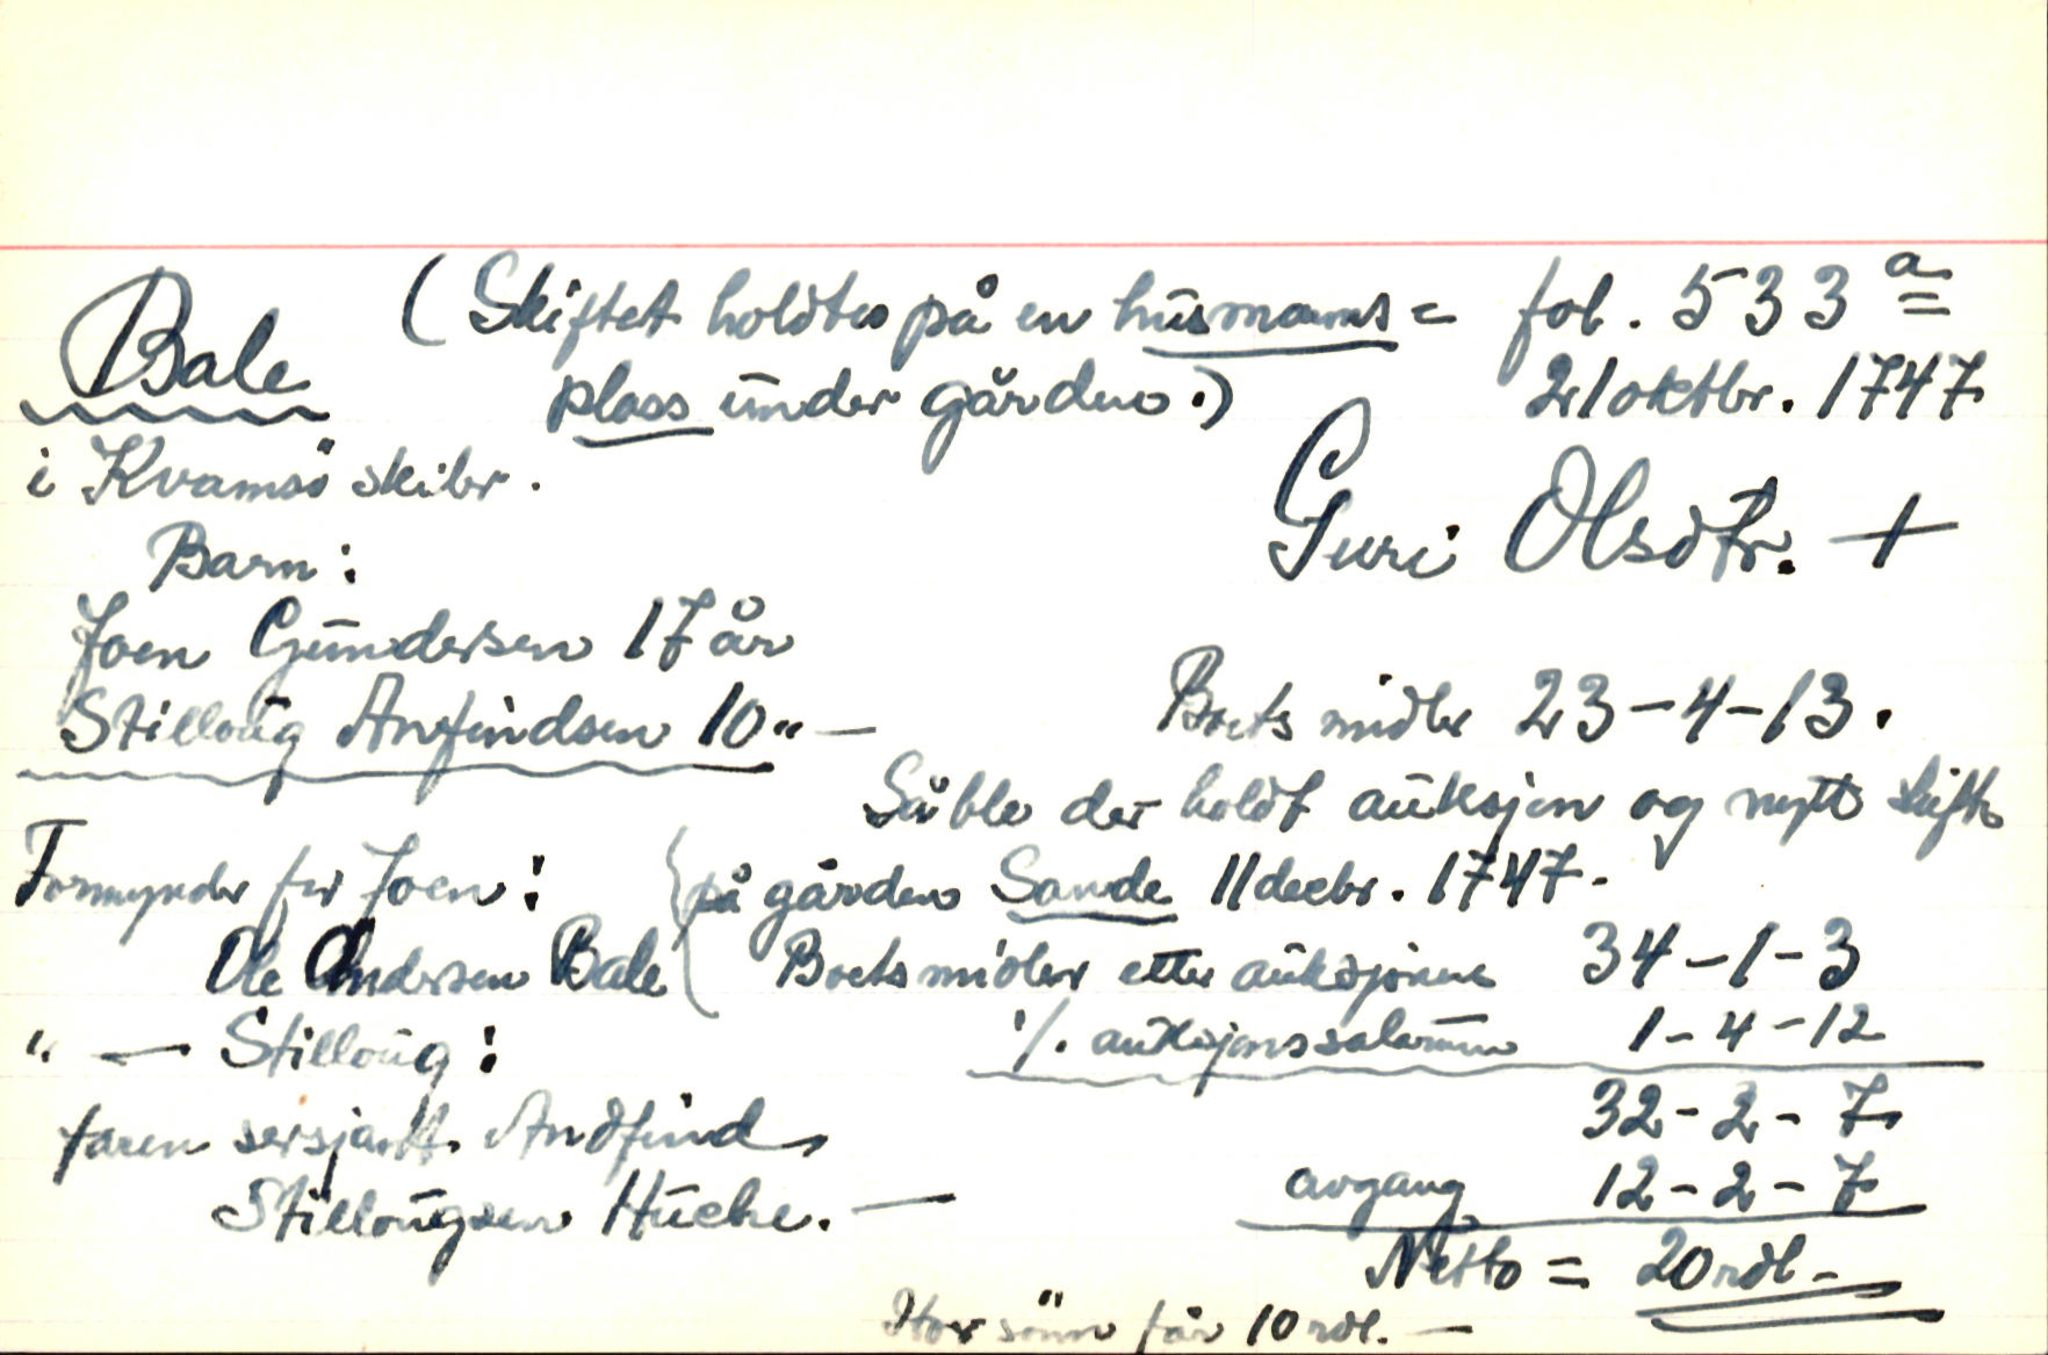 Bale (Skiftet holdtes på en husmanns= fol. 533 a
plass under gården.) 21 oktbr. 1747
i Kvamsö skibr.
Guri Olsdtr. +
Barn:
Joen Gundersen 17 år
Stilloug Anfindsen 10 " —
Boets midler 23-4-13.
Så ble der holdt auksjon og nytt skifte
på gården Sande 11 decbr. 1747.
Formynder for Joen:
Ole Andersen Bale
Boets midler etter auksjonen 34-1-3
" — Stilloug:
./. auksjonssalarium 1-4-12
32-2-7
faren sersjant Andfind
Stillougsen Hueke. —
avgang 12-2-7
Netto = 20 rdl. -
Hver sönn får 10 rdl. —